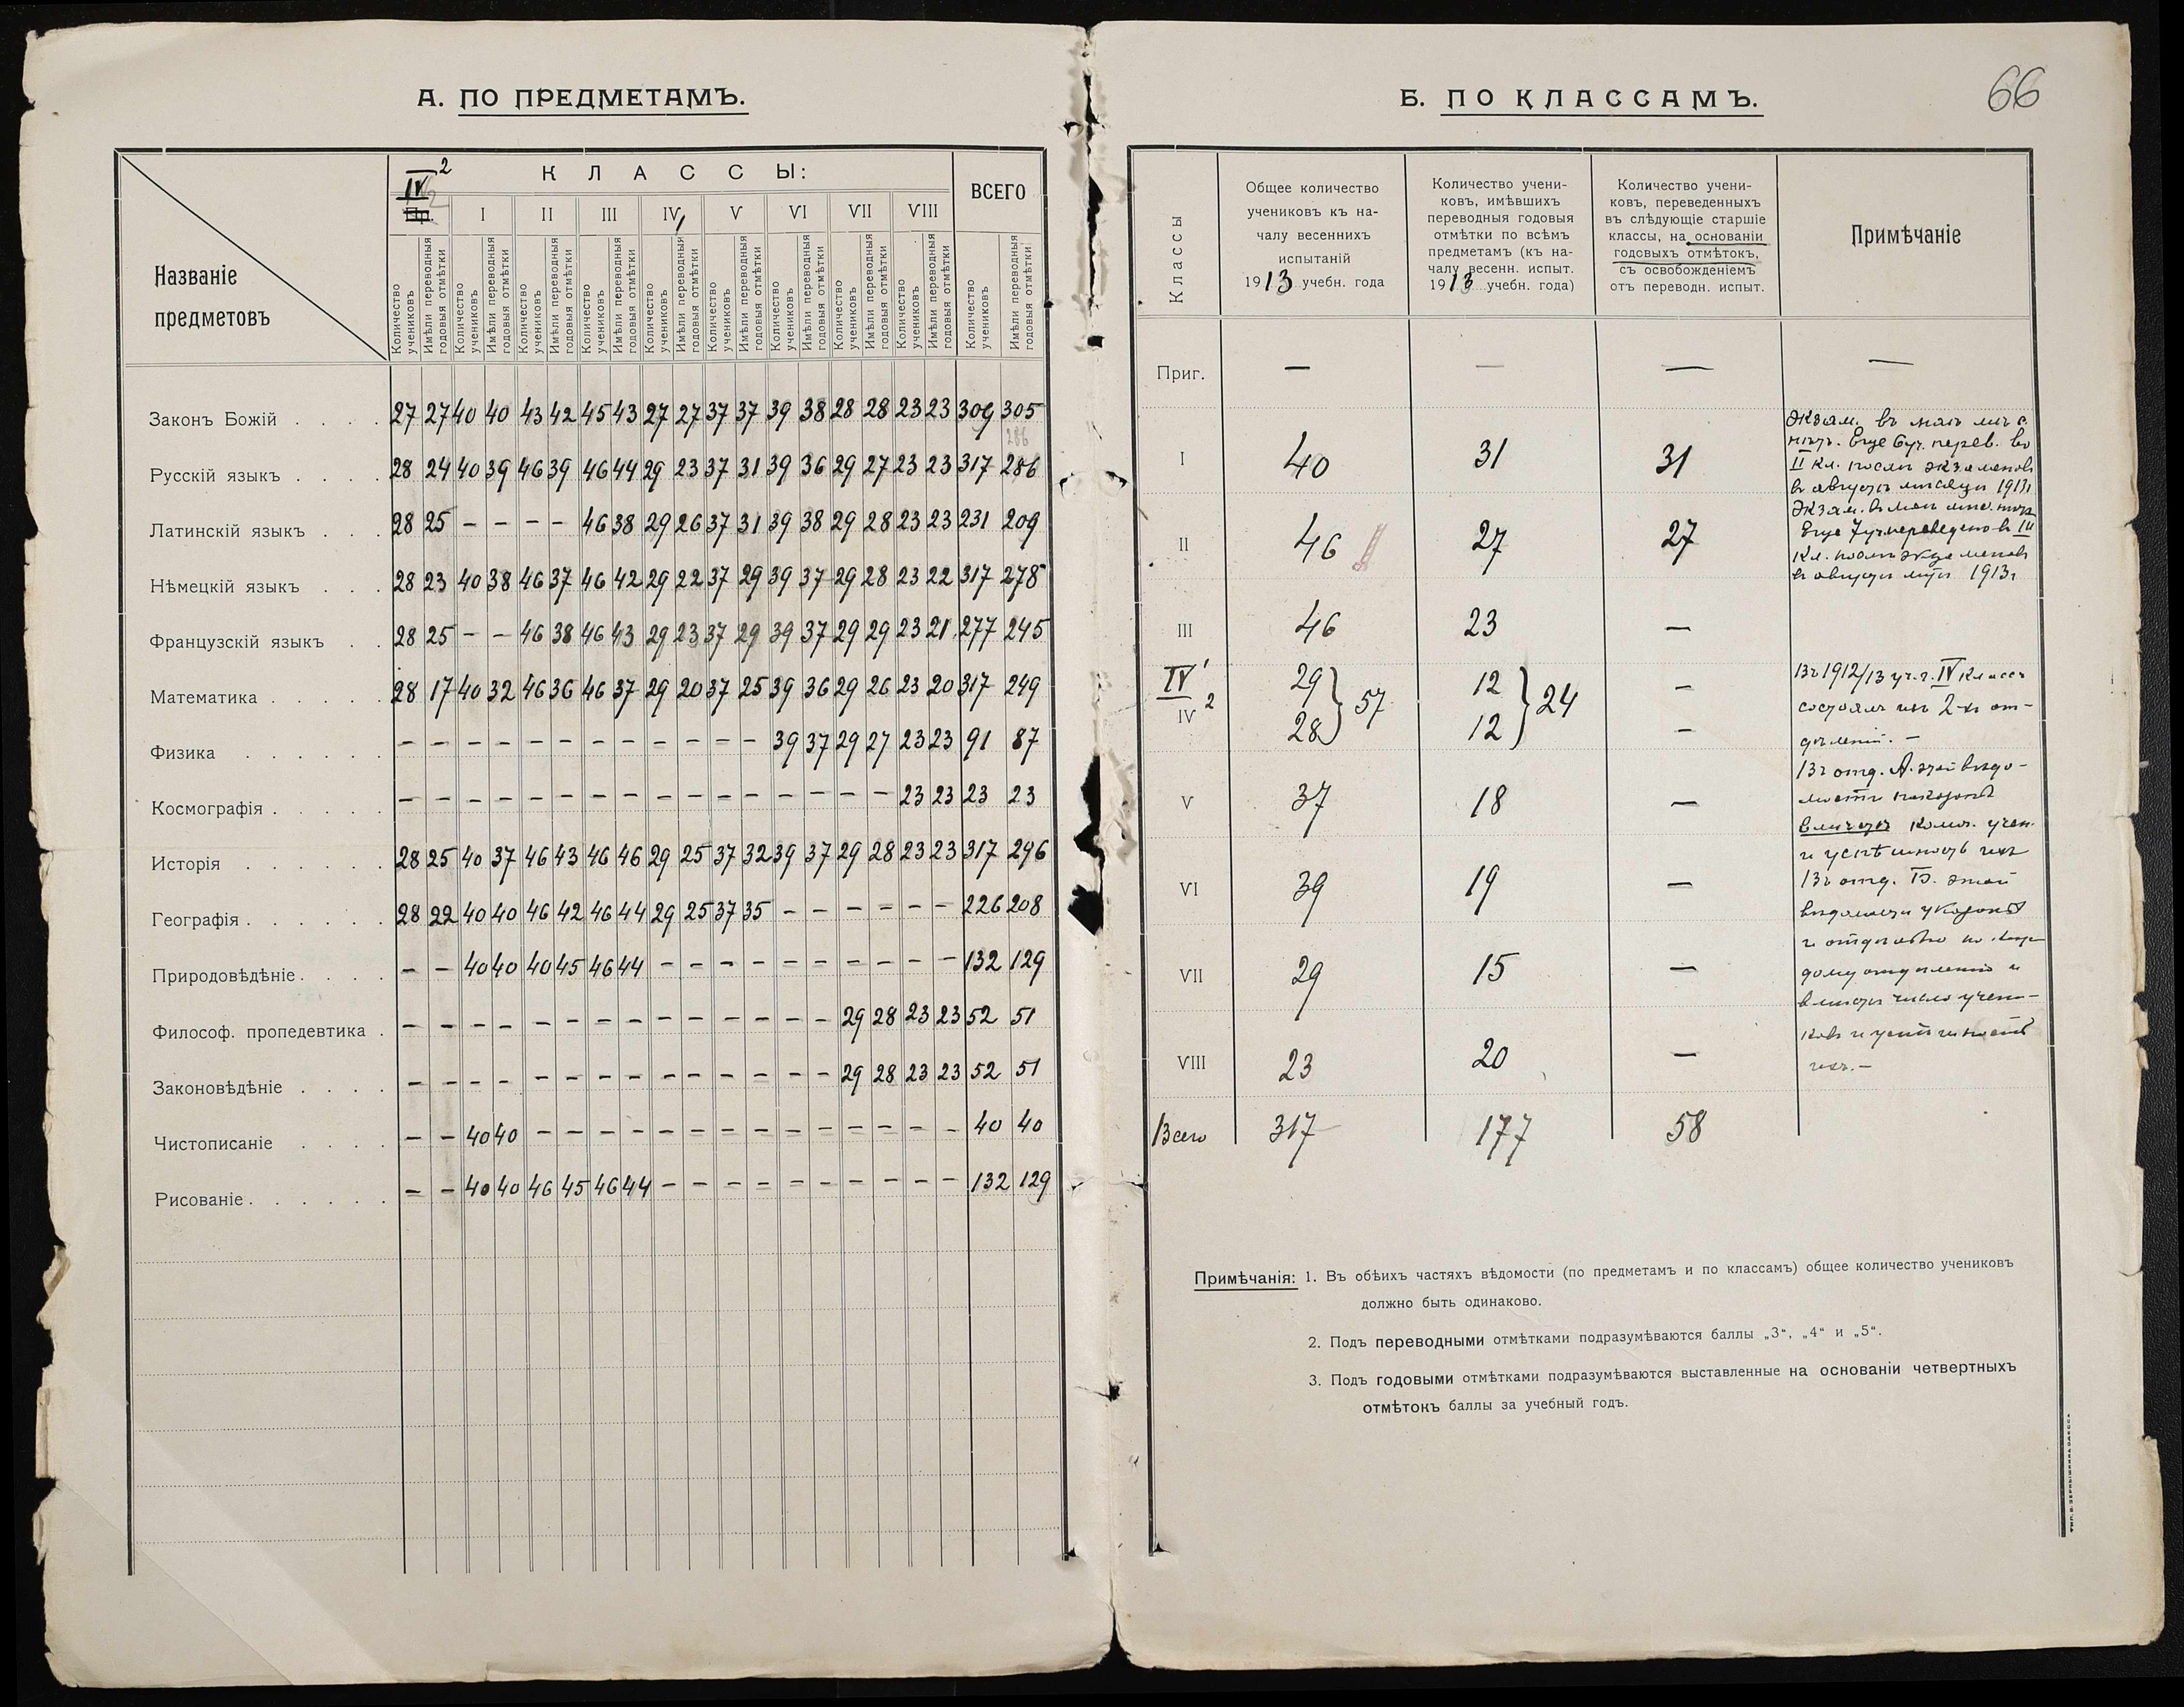 66
А. ПО ПРЕДМЕТАМЪ.
Названіе предметовъ
IV 2
Пр.
КЛАССЫ:
ВСЕГО
I II III IV 1 V VI VII VIII
Количество учениковъ Имѣли переводныя годовыя отмѣтки Количество учениковъ Имѣли переводныя годовыя отмѣтки Количество учениковъ Имѣли переводныя годовыя отмѣтки Количество учениковъ Имѣли переводныя годовыя отмѣтки Количество учениковъ Имѣли переводныя годовыя отмѣтки Количество учениковъ Имѣли переводныя годовыя отмѣтки Количество учениковъ Имѣли переводныя годовыя отмѣтки Количество учениковъ Имѣли переводныя годовыя отмѣтки Количество учениковъ Имѣли переводныя годовыя отмѣтки Количество учениковъ Имѣли переводныя годовыя отмѣтки
Законъ Божій . . . . 27 27 40 40 43 42 45 43 27 27 37 37 39 38 28 28 23 23 309 305
286
Русскій языкъ . . . . 28 24 40 39 46 39 46 44 29 23 37 31 39 36 29 27 23 23 317 286
Латинскій языкъ . . . 28 25 – – – – 46 38 29 26 37 31 39 38 29 28 23 23 231 209
Нѣмецкій языкъ . . . 28 23 40 38 46 37 46 42 29 22 37 29 39 37 29 28 23 22 317 278
Французскій языкъ . . 28 25 – – 46 38 46 43 29 23 37 29 39 37 29 29 23 21 277 245
Математика . . . . . 28 17 40 32 46 36 46 37 29 20 37 25 39 36 29 26 23 20 317 249
Физика . . . . . . – – – – – – – – – – – – 39 37 29 27 23 23 91 87
Космографія . . . . . – – – – – – – – – – – – – – – – 23 23 23 23
Исторія . . . . . . 28 25 40 37 46 43 46 46 29 25 37 32 39 37 29 28 23 23 317 296
Географія . . . . . . 28 22 40 40 46 42 46 44 29 25 37 35 – – – – – – 226 208
Природовѣдѣніе . . . . – – 40 40 40 45 46 44 – – – – – – – – – – 132 129
Философ. пропедевтика . – – – – – – – – – – – – – – 29 28 23 23 52 51
Законовѣдѣніе . . . . – – – – – – – – – – – – – – 29 28 23 23 52 51
Чистописаніе . . . . – – 40 40 – – – – – – – – – – – – – – 40 40
Рисованіе . . . . . . – – 40 40 46 45 46 44 – – – – – – – – – – 132 129
Б. ПО КЛАССАМЪ.
Классы
Общее количество
учениковъ къ на-
чалу весеннихъ
испытаній
1913 учебн. года
Количество учени-
ковъ, имѣвшихъ
переводныя годовыя
отмѣтки по всѣмъ
предметамъ (къ на-
чалу весенн. испыт.
1913 учебн. года)
Количество учени-
ковъ, переведенныхъ
въ слѣдующіе старшіе
классы, на основаніи
годовыхъ отмѣтокъ,
съ освобожденіемъ
отъ переводн. испыт.
Примѣчаніе
Приг. — — — —
I 40 31 31
II 46 27 27
III 46 23 —
IV 1 29 12 –
IV 2 28 12 –
57 24
V 37 18 —
VI 39 19 —
VII 29 15 —
VIII 23 20 —
Всего 317 177 58
Экзам. въ маѣ мѣс.
Еще 6 уч. перев. во
II кл. послѣ экзаменовъ
въ августѣ мѣсяцѣ 1913г
Еще 7 уч. переведено въ III
кл. послѣ экзаменовъ
въ августѣ 1913г
Въ 1912/13 уч. г. IV классъ
состоялъ изъ 2-хъ от-
дѣленій. –
Въ отд. А. этой вѣдо-
мости показано
вмѣстѣ колич. учен.
и успѣшность ихъ
Въ отд. Б. этой
вѣдомости указано
и отдѣльно по каж-
дому отдѣленію и
вмѣстѣ число учени-
ковъ и успѣшность
ихъ.–
Примѣчанія: 1. Въ обѣихъ частяхъ вѣдомости (по предметамъ и по классамъ) общее количество учениковъ
должно быть одинаково.
2. Подъ переводными отмѣтками подразумѣваются баллы „3“, „4“ и „5“.
3. Подъ годовыми отмѣтками подразумѣваются выставленные на основаніи четвертныхъ
отмѣтокъ баллы за учебный годъ.